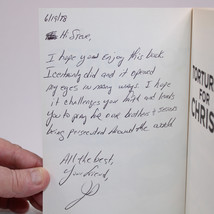 6/15/98
Hi Steve,
I hope you enjoy this book
I certainly did and it opened
my eyes in many ways. I hope
it challenges your faith and leads
you to pray for our brothers & sisters
being persecuted around the world
All the best,
Your friend,
TORTURE
FOR
CHRIS